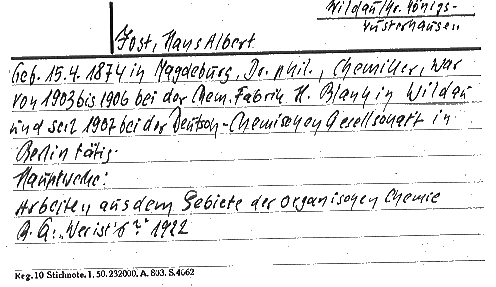 Wildau/Kr. Königs-
Wusterhausen
Jost, Hans Albert
Geb. 15.4. 1874 in Magdeburg, Dr. phil., Chemiker, war
von 1903 bis 1906 bei der Chem. Fabrik H. Blank in Wildau
und seit 1907 bei der Deutsch-Chemischen Gesellschaft in
Berlin tätig.
Hauptwerke:
Arbeiten aus dem Gebiete der organischen Chemie
"Wer ist's?" 1922
Reg. 10 Stichnote. I. 50. 232000. A. 803. S. 4662